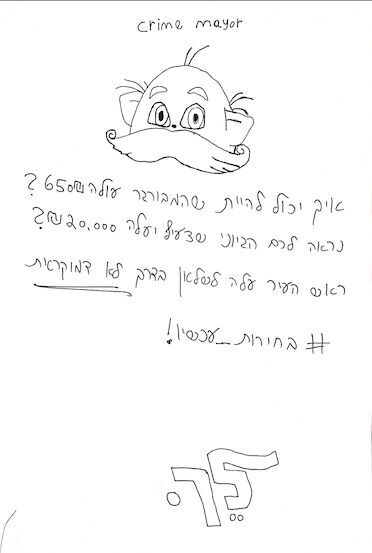 crime mayor
איך יכול להיות שהמבורגר עולה 650₪?
נראה לכם הגיוני שצעיף יעלה 20.000₪?
ראש העיר עלה לשלטון בדרך לא דמוקרטית
# בחירות_עכשיו!
לֵך